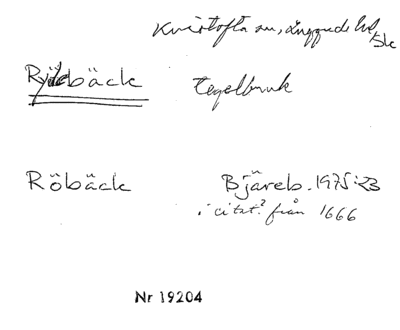 Kvistofta sn, Luggude hd, Sk
Rydebäck tegelbruk
Röbäck Bjäreb. 1975:23
i citat? från 1666
Nr 19204